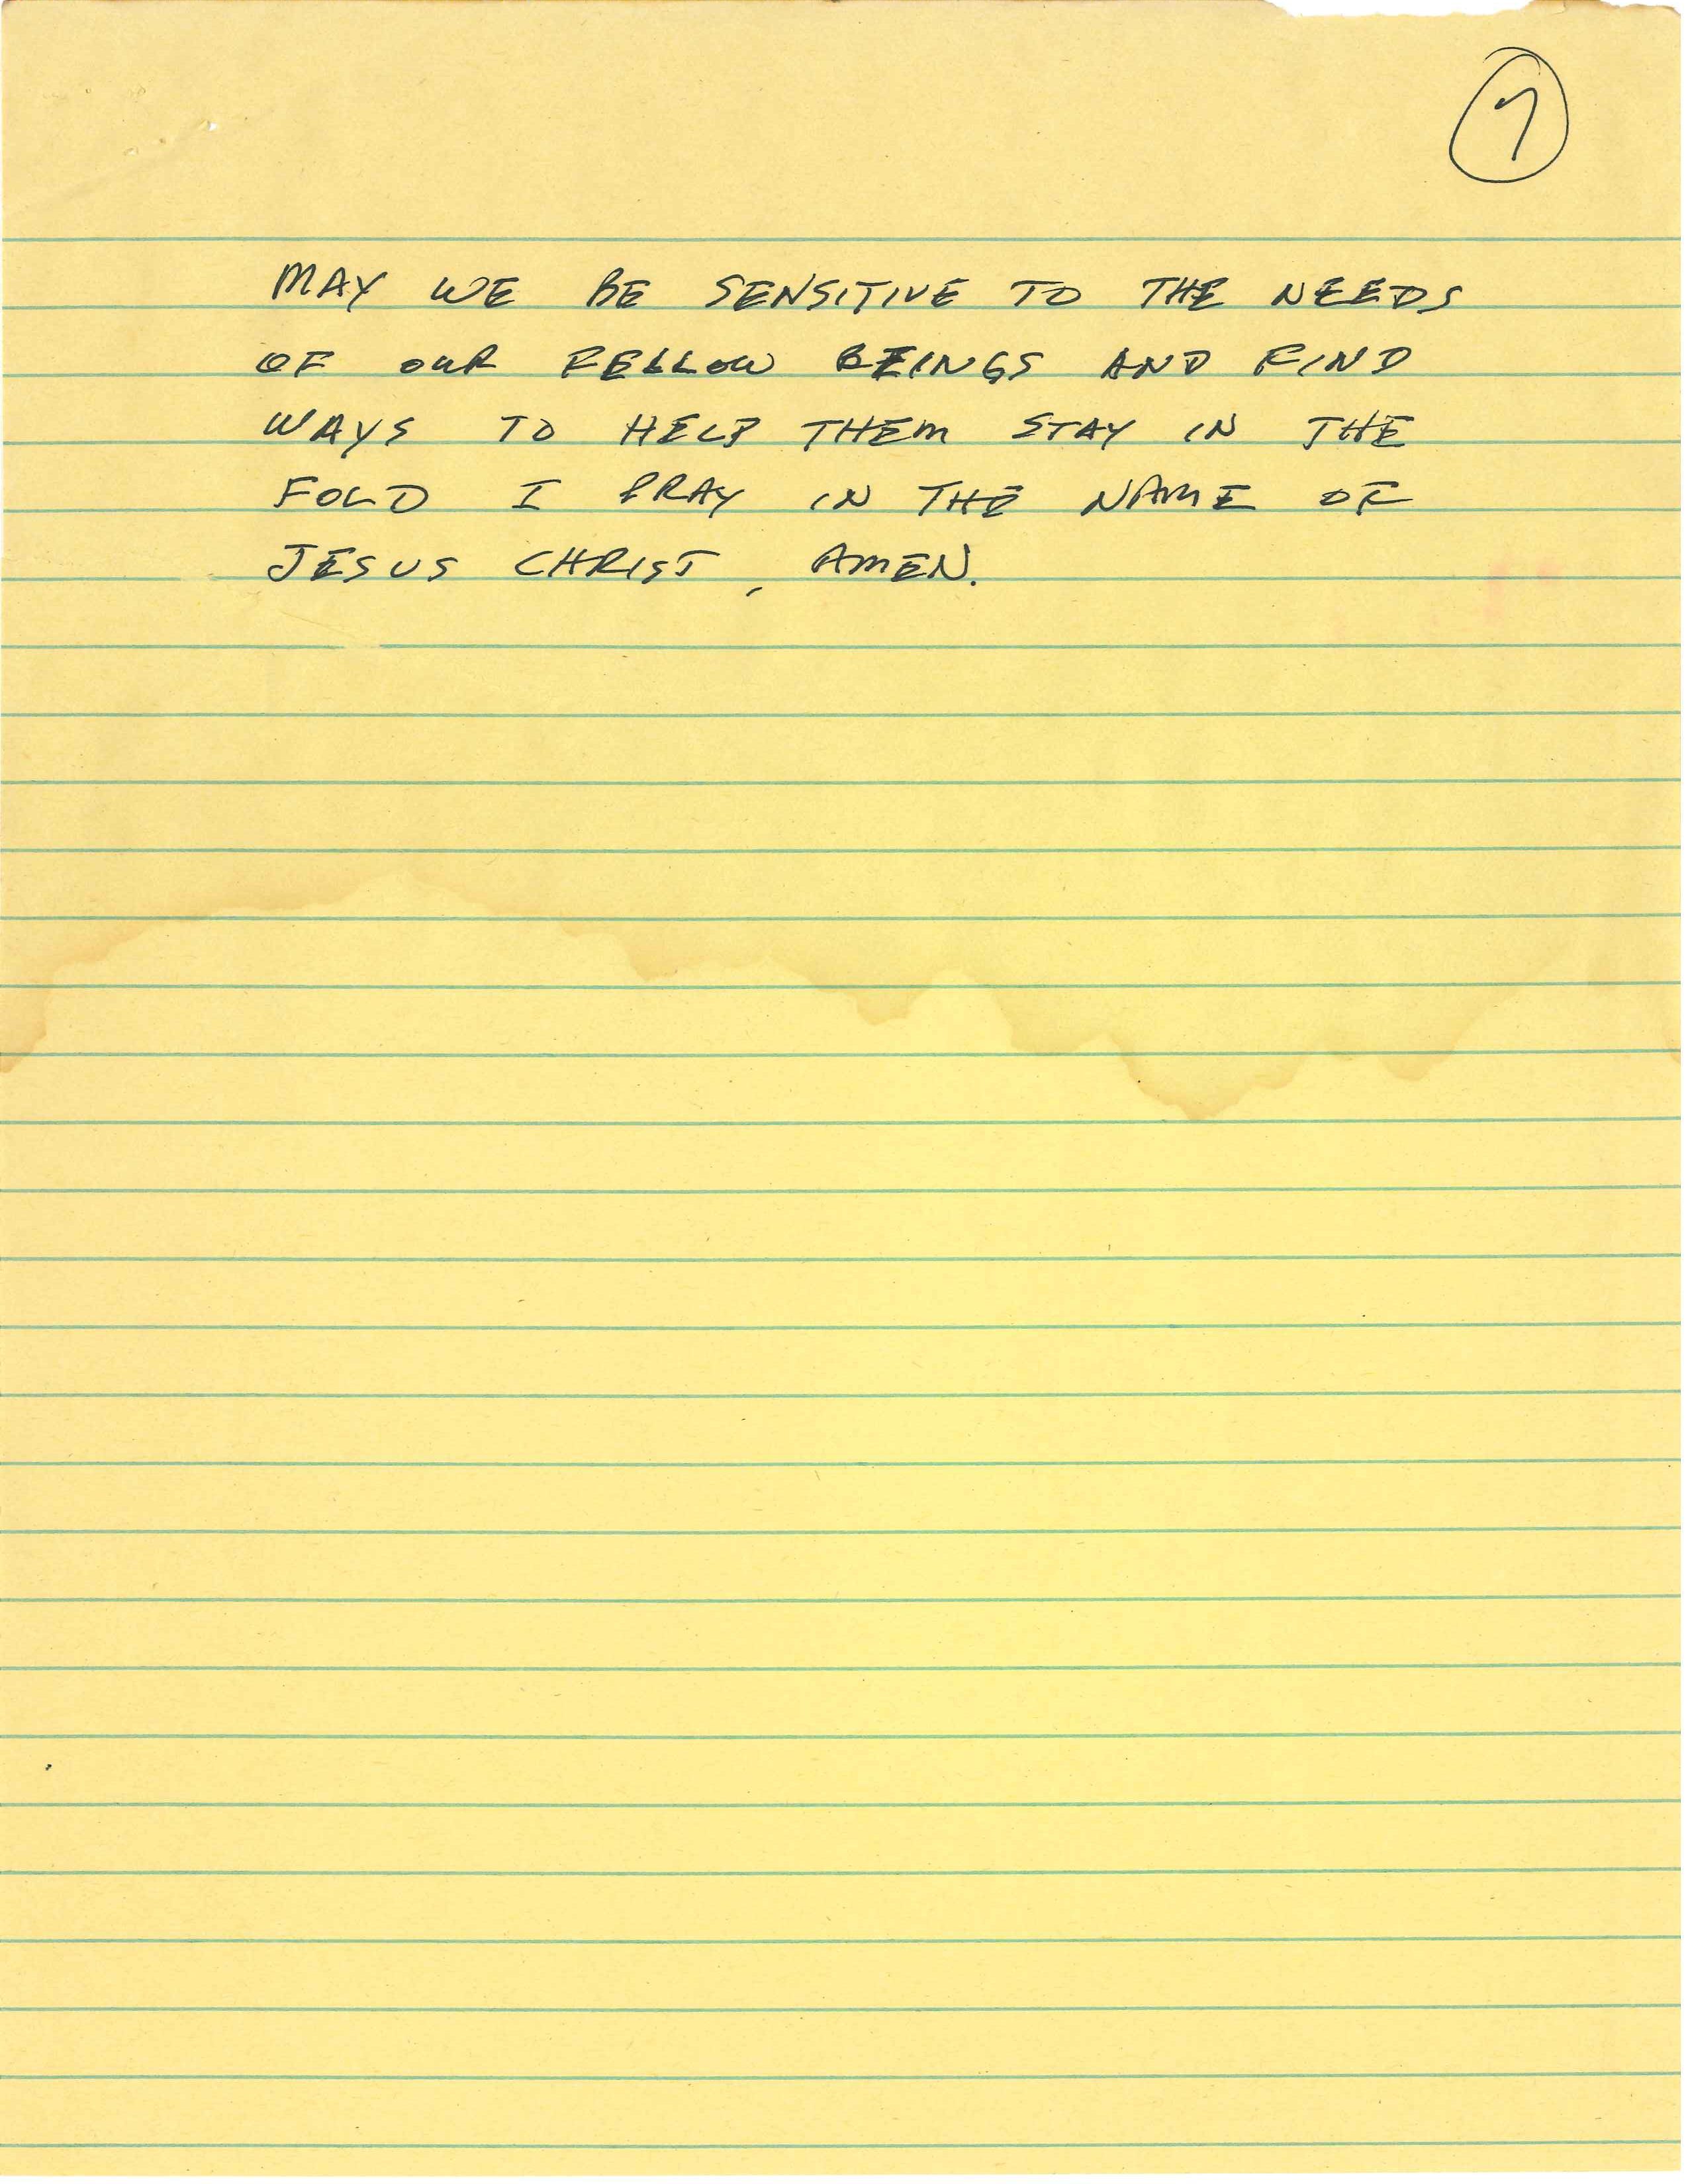 7
MAY WE BE SENSITIVE TO THE NEEDS
OF OUR FELLOW BEINGS AND FIND
WAYS TO HELP THEM STAY IN THE
FOLD I PRAY IN THE NAME OF
JESUS CHRIST, AMEN.